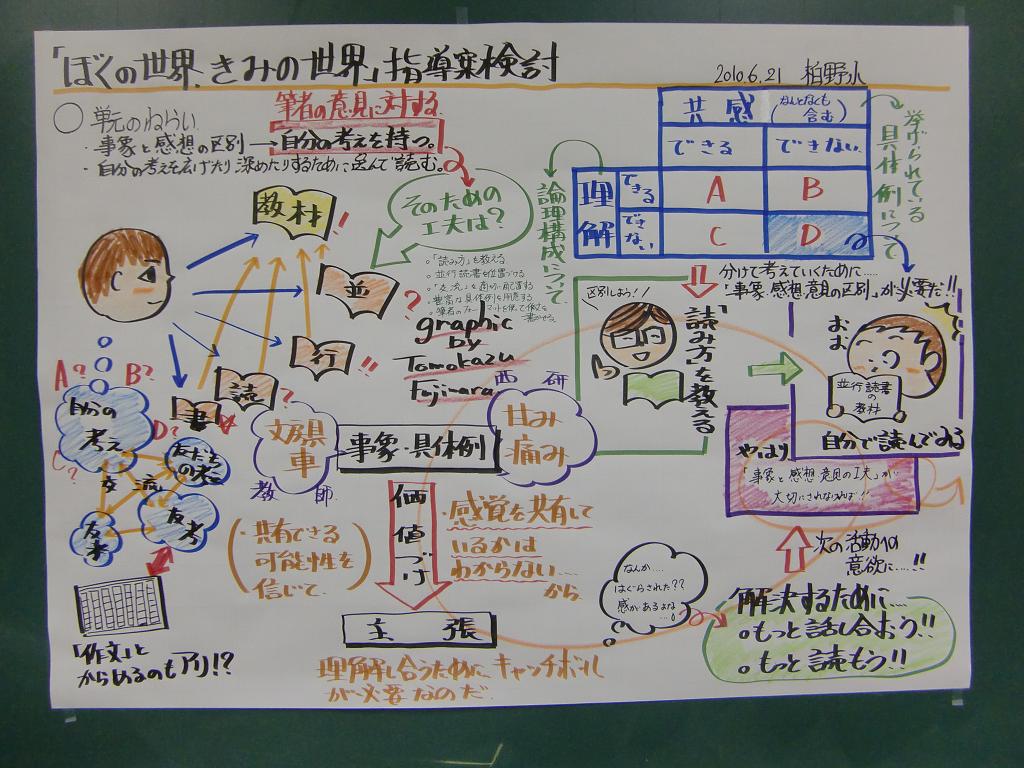 「ぼくの世界、きみの世界」指導案検討
2010.6.21 柏野小
○単元のねらい
筆者の意見に対する
・事象と感想の区別→自分の考えを持つ。
・自分の考えを広げたり深めたりするために選んで読む。
教材!
並?
行!!
読?
書
そのための
工夫は?
。「読み方」を教える
。並行読書を位置づける
。「交流」を適切に配置する
。豊富な具体例を用意する
graphic
by
Tomokazu
Fujiwara
共感(なんとなくも含む)
できる
できない
理解
できる
できない
A
B
C
D
論理構成について
挙げられている
具体例について
分けて考えていくために……
「事象・感想意見の区別」が必要だ!!
区別しよう!!
「読み方」を教える
おお
並行読書
の
教材
自分で読んでみる
A?
B?
C?
D?
自分の
考え
友だち
の考え
交流
友
考
友考
「作文」と
からめるのもアリ!?
文房具
車
教師
事象・具体例
西研
甘み
痛み
価値づけ
(共有できる
可能性を
信じて。)
・感覚を共有して
いるかは
わからない…
から
主張
理解し合うためにキャッチボール
が必要なのだ。
なんか……
はぐらされた??
感があるよな…。
やはり
「事象と感想意見の工夫」が
大切にされなければ!!
次の活動への
意欲に……!!
解決するために……
。もっと話し合おう!!
。もっと読もう!!